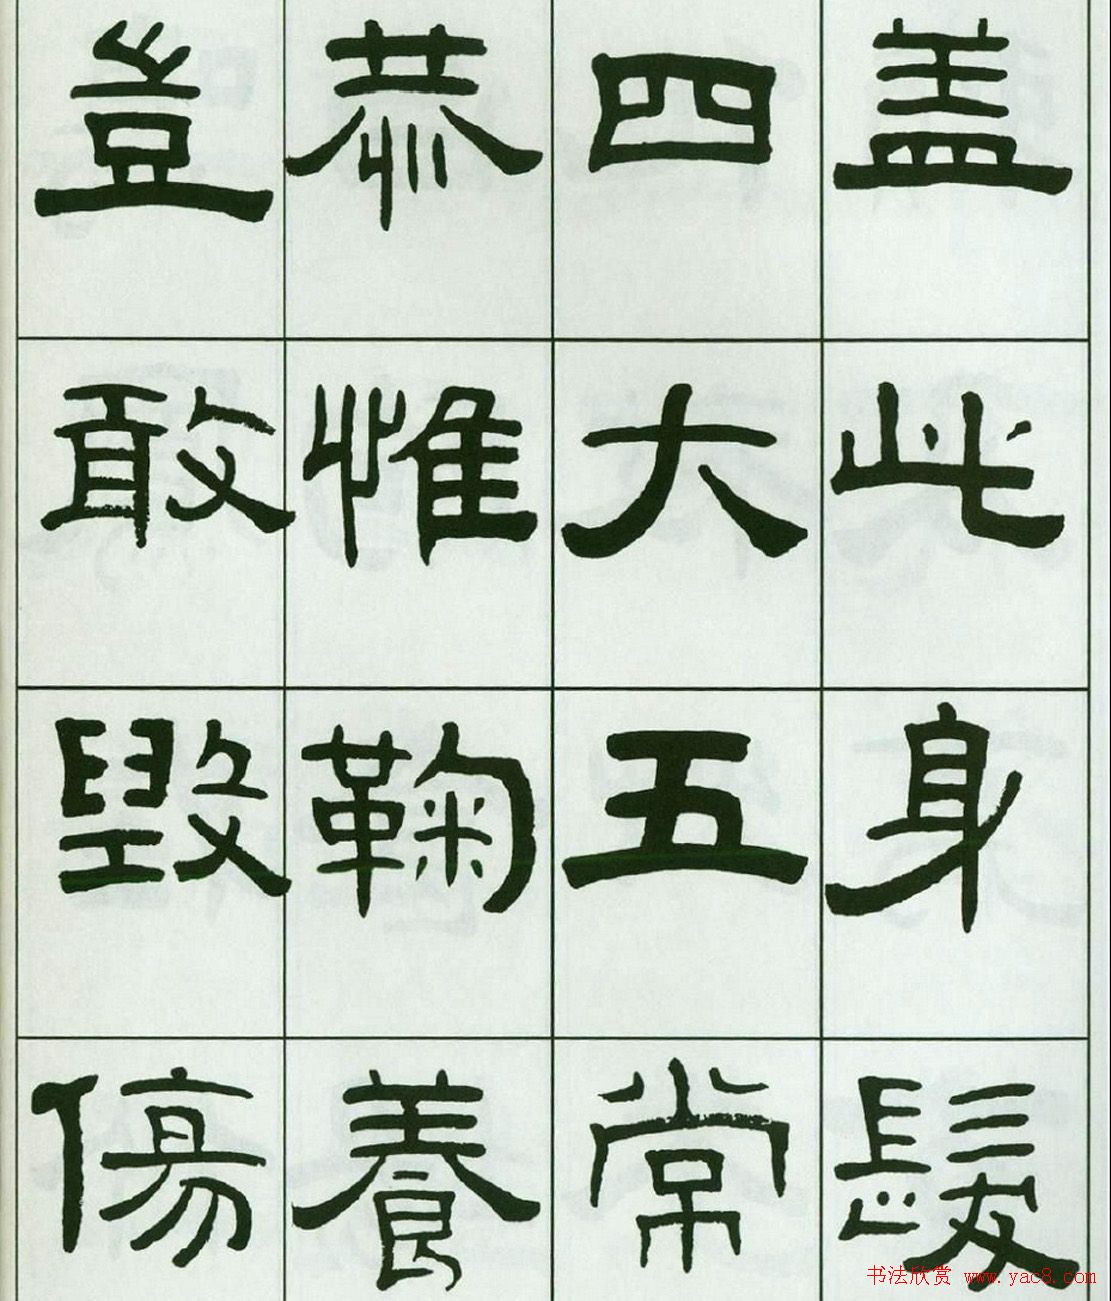 盖此身髮
四大五常
恭惟鞠養
豈敢毀傷
书法欣赏 www.yac8.com